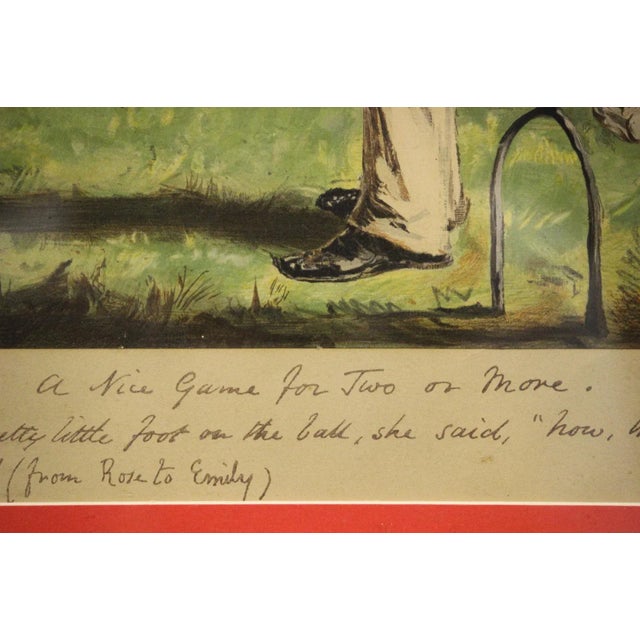 A Nice Game for Two or More.
etty little foot on the ball, she said, "now,
(from Rose to Emily)